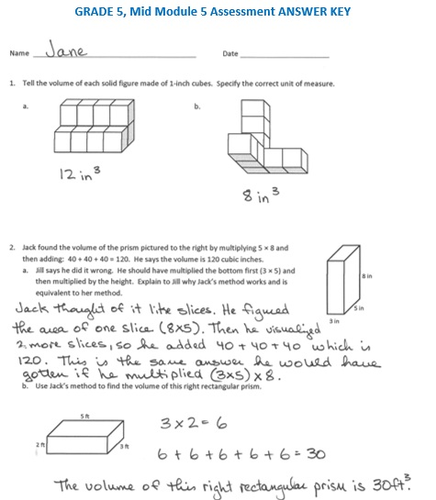 GRADE 5, Mid Module 5 Assessment ANSWER KEY
Name Jane Date
1. Tell the volume of each solid figure made of 1-inch cubes. Specify the correct unit of measure.
a. b.
12 in³
8 in³
2. Jack found the volume of the prism pictured to the right by multiplying 5 × 8 and
then adding: 40 + 40 + 40 = 120. He says the volume is 120 cubic inches.
a. Jill says he did it wrong. He should have multiplied the bottom first (3 × 5) and
then multiplied by the height. Explain to Jill why Jack's method works and is
equivalent to her method.
8 in
5 in
3 in
Jack thought of it like slices. He figured
the area of one slice (8×5). Then he visualized
2 more slices, so he added 40 + 40 + 40 which is
120. This is the same answer he would have
gotten if he multiplied (3×5) × 8.
b. Use Jack's method to find the volume of this right rectangular prism.
5 ft
2 ft
3 ft
3 × 2 = 6
6 + 6 + 6 + 6 + 6 = 30
The volume of this right rectangular prism is 30ft³.